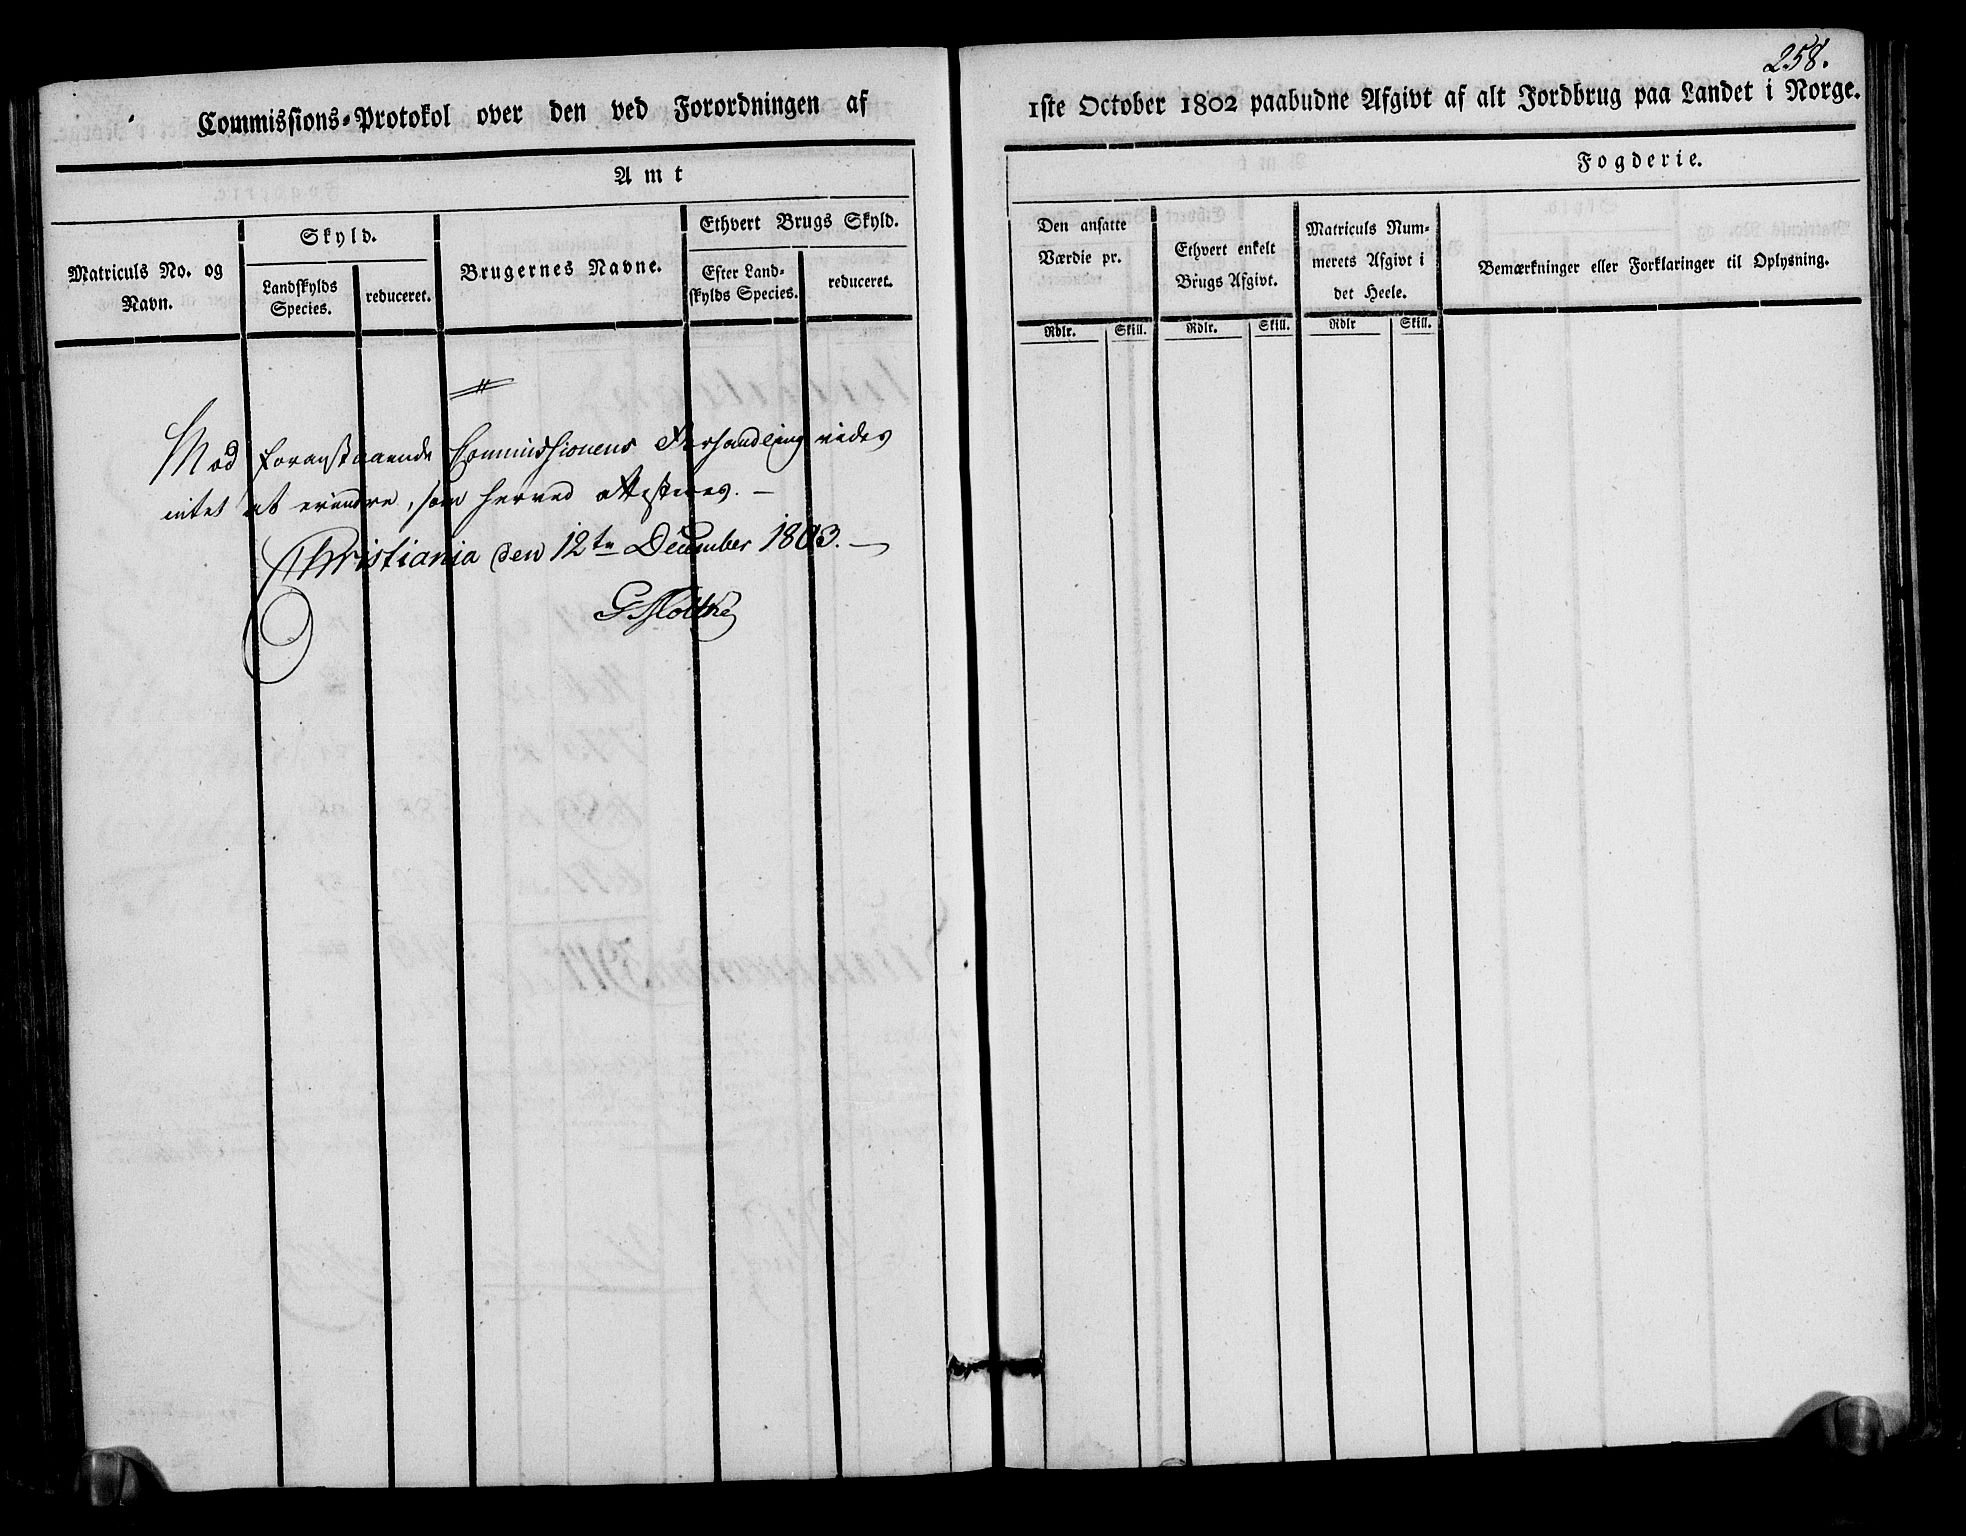 258.
Commissions-Protokol over den ved Forordningen af 1ste October 1802 paabudne Afgivt af alt Jordbrug paa Landet i Norge.
Amt
Fogderie.
Matriculs No. og Navn.
Skyld.
Landskylds Species.
reduceret.
Brugernes Navne.
Ethvert Brugs Skyld.
Efter Landskylds Species.
reduceret.
Den ansatte Værdie pr.
Rdlr. Skill.
Ethvert enkelt Brugs Afgivt.
Rdlr. Skill.
Matriculs Nummerets Afgivt i det Heele.
Rdlr Skill.
Bemærkninger eller Forklaringer til Oplysning.
Mod foranstaaende Commissionens Forhandling vides
intet at erindre, som herved attesteres. —
Christiania den 12te December 1803. —
G Moltke